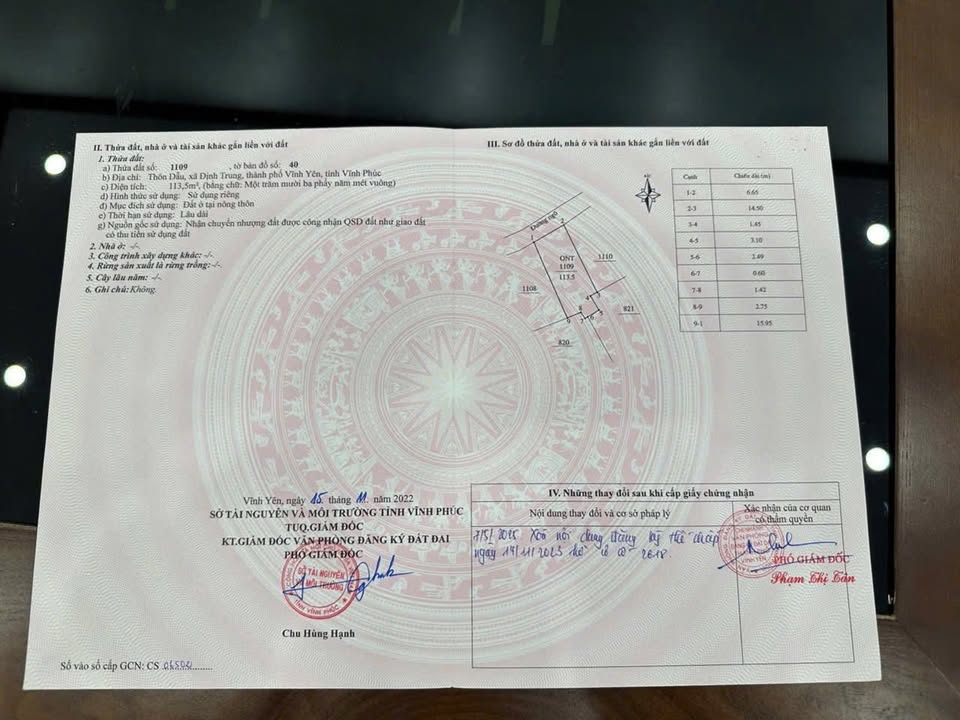 II. Thửa đất, nhà ở và tài sản khác gắn liền với đất
1. Thửa đất:
a) Thửa đất số: 1109 , tờ bản đồ số: 40
b) Địa chỉ: Thôn Dẫu, xã Định Trung, thành phố Vĩnh Yên, tỉnh Vĩnh Phúc
c) Diện tích: 113,5m², (bằng chữ: Một trăm mười ba phẩy năm mét vuông)
d) Hình thức sử dụng: Sử dụng riêng
đ) Mục đích sử dụng: Đất ở tại nông thôn
e) Thời hạn sử dụng: Lâu dài
g) Nguồn gốc sử dụng: Nhận chuyển nhượng đất được công nhận QSD đất như giao đất
có thu tiền sử dụng đất
2. Nhà ở: -/-
3. Công trình xây dựng khác: -/-
4. Rừng sản xuất là rừng trồng: -/-
5. Cây lâu năm: -/-
6. Ghi chú: Không.
Vĩnh Yên, ngày 15 tháng 11 năm 2022
SỞ TÀI NGUYÊN VÀ MÔI TRƯỜNG TỈNH VĨNH PHÚC
TUQ.GIÁM ĐỐC
KT.GIÁM ĐỐC VĂN PHÒNG ĐĂNG KÝ ĐẤT ĐAI
PHÓ GIÁM ĐỐC
SỞ TÀI NGUYÊN
VÀ MÔI TRƯỜNG
TỈNH VĨNH PHÚC
Chu Hùng Hạnh
Số vào sổ cấp GCN: CS
III. Sơ đồ thửa đất, nhà ở và tài sản khác gắn liền với đất
Đường ngõ
2
ONT
1109
113.5
1110
1108
821
820
Cạnh Chiều dài (m)
1-2 6.65
2-3 14.50
3-4 1.45
4-5 3.10
5-6 2.49
6-7 0.60
7-8 1.42
8-9 2.75
9-1 15.95
IV. Những thay đổi sau khi cấp giấy chứng nhận
Nội dung thay đổi và cơ sở pháp lý
Xác nhận của cơ quan
có thẩm quyền
7/5/2025 Xoá nội dung đăng ký thế chấp
ngày 14/11/2023
VĂN PHÒNG
VĨNH YÊN
PHÓ GIÁM ĐỐC
Phạm Thị Tân